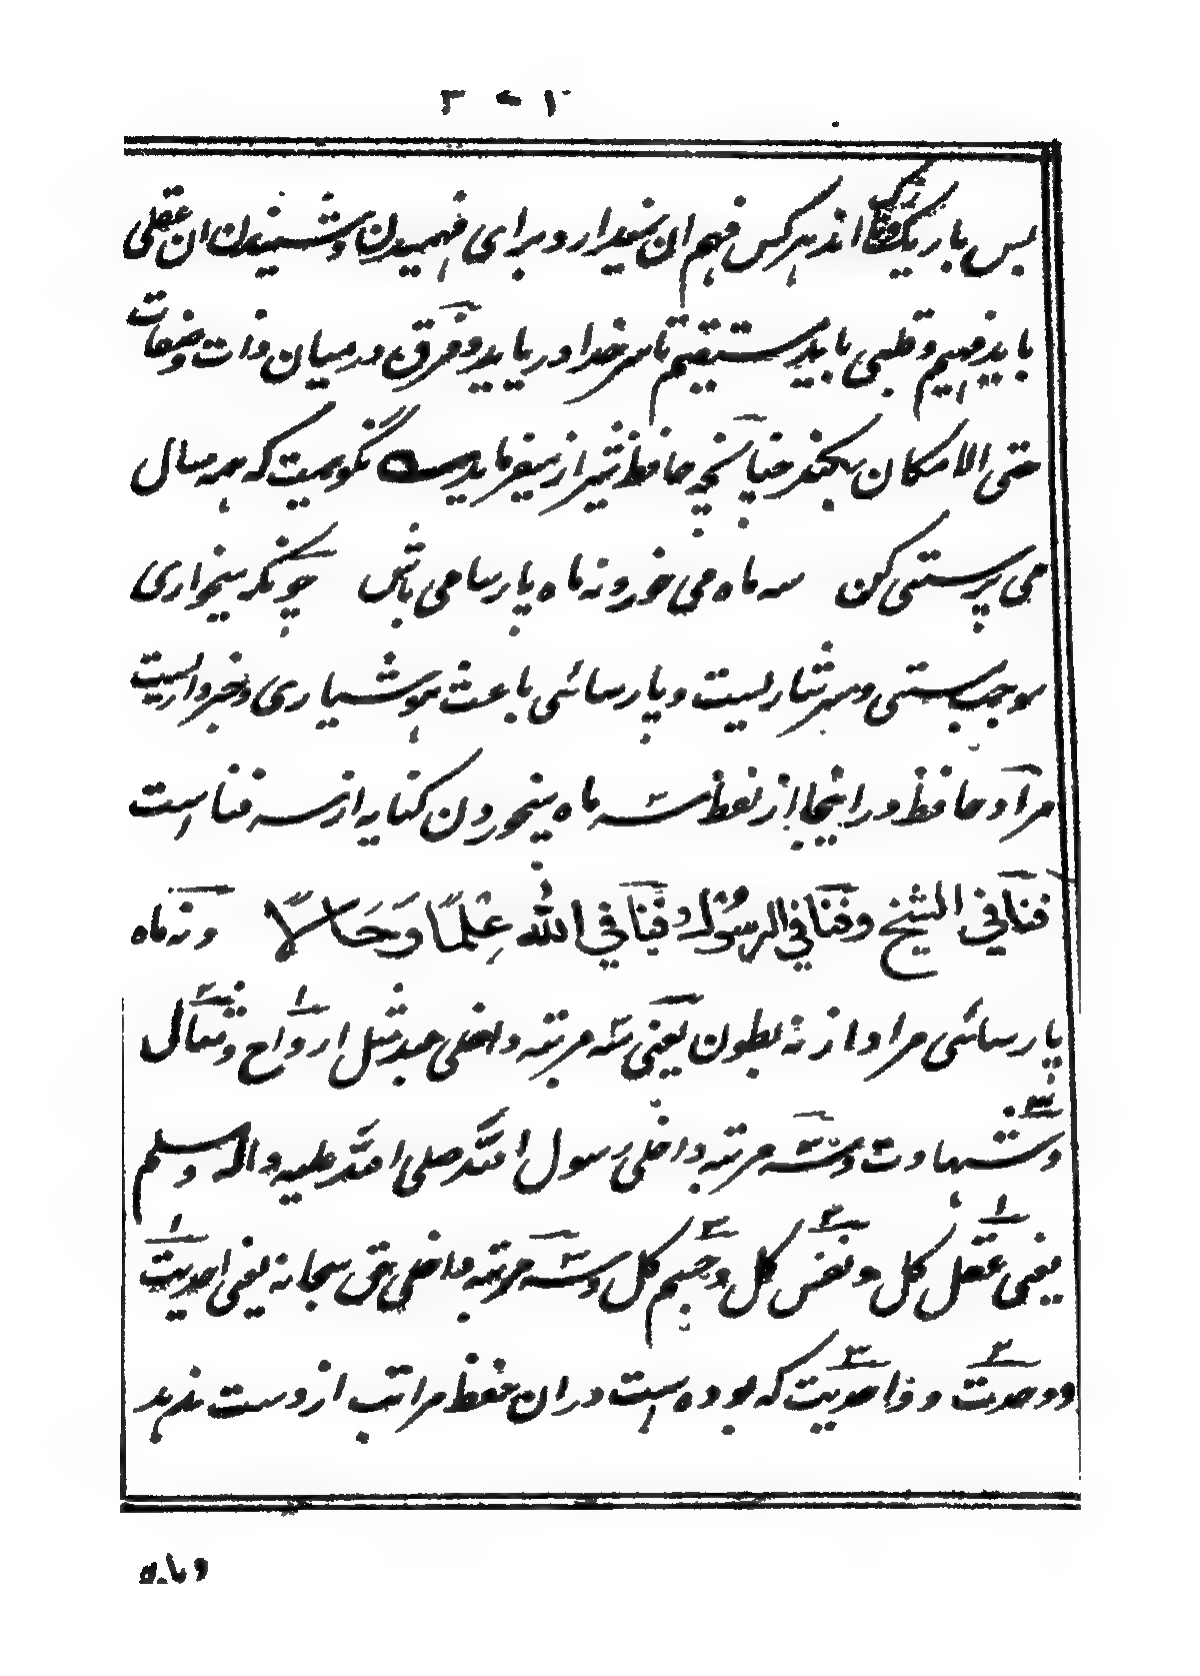 ۲۰۳
بس باریک و نازک اند هر کس فهم ان نمیدارد و برای فهمیدن و شنیدن ان عقلی
باید فهیم و قلبی باید مستقیم تا سر خدا دریابد و فرق درمیان ذات و صفات
حتی الامکان بکند چنانچه حافظ شیراز میفرماید نگویمت که همه سال
می پرستی کن سه ماه می خور و نه ماه پارسا می باش چونکه میخواری
موجب مستی و سرشاریست و پارسائی باعث هوشیاری و خبرداریست
مراد حافظ در اینجا از لفظ سه ماه میخوردن کنایه از سه فنا است
فنا فی الشیخ و فنا فی الرسول و فنا فی الله عِلمًا وَحَالاً و نه ماه
پارسائی مراد از نه بطون یعنی سه مرتبه داخلی عبد مثل ارواح و مثال
و شهادت و سه مرتبه داخلی رسول الله صلی الله علیه واله وسلم
یعنی عقل کل و نفس کل و جسم کل و سه مرتبه داخلی حق سبحانه یعنی احدیت
و وحدت و واحدیت که بوده است دران حفظ مراتب از دست ندهد